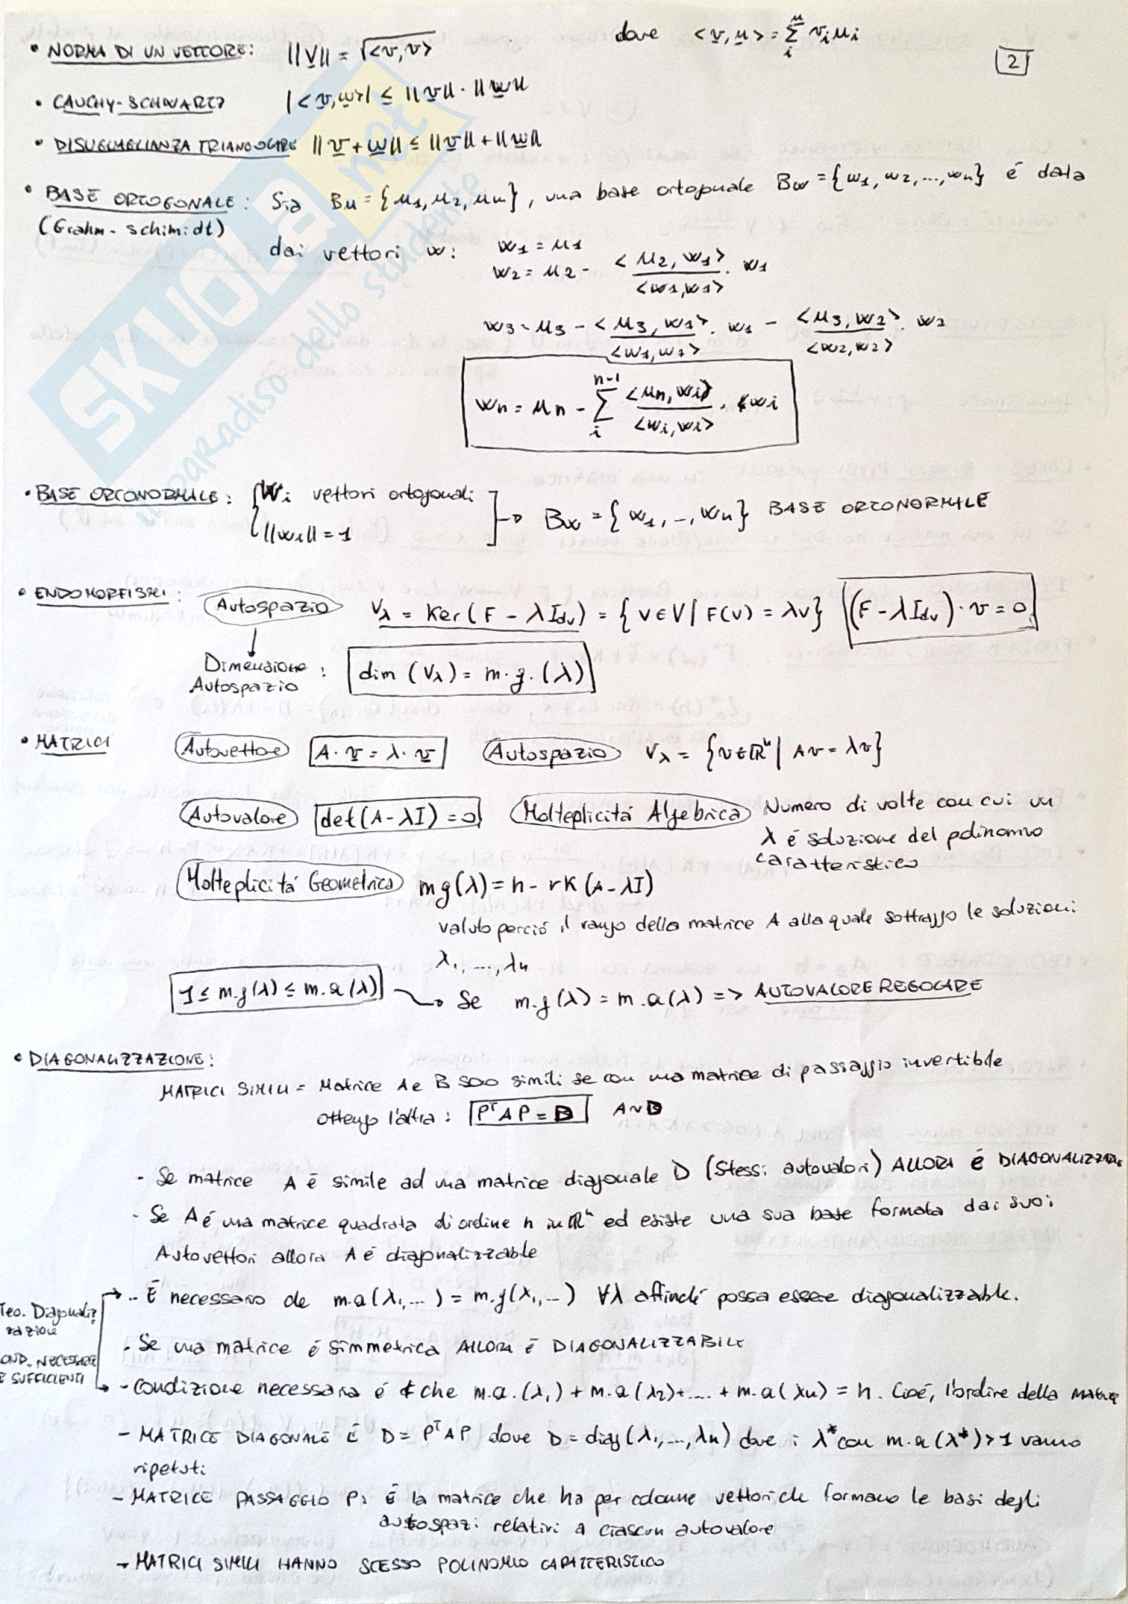 • NORMA DI UN VETTORE: ||V|| = √<v,v> dove <v,u> = Σ_i^n v_i u_i
2
• CAUCHY-SCHWARTZ |<v,w>| ≤ ||v||·||w||
• DISUGUAGLIANZA TRIANGOLARE ||v+w|| ≤ ||v||+||w||
• BASE ORTOGONALE: Sia Bu = {u1, u2, un}, una base ortogonale Bw = {w1, w2, ..., wn} é data
(Grahm-schimidt) dai vettori w: w1 = u1
w2 = u2 - <u2,w1>/<w1,w1> · w1
w3 = u3 - <u3,w1>/<w1,w1> · w1 - <u3,w2>/<w2,w2> · w2
wn = un - Σ_i^{n-1} <un,wi>/<wi,wi> · wi
• BASE ORTONORMALE: { Wi vettori ortogonali
||wi|| = 1 ] → Bw = {w1, .., wn} BASE ORTONORMALE
• ENDOMORFISMI: Autospazio Vλ = Ker(F - λIdv) = {v∈V | F(v) = λv} (F - λIdv)·v = 0
Dimensione Autospazio : dim (Vλ) = m.g.(λ)
• MATRICI Autovettore A·v = λ·v Autospazio Vλ = {v∈ℝⁿ | Av = λv}
Autovalore det(A-λI) = 0 Molteplicitá Algebrica Numero di volte con cui un
λ é soluzione del polinomio
caratteristico
Molteplicitá Geometrica mg(λ) = n - rk(A-λI)
valuto perció il rango della matrice A alla quale sottraggo le soluzioni
λ1, ..., λn
1 ≤ m.g(λ) ≤ m.a(λ) → Se m.g(λ) = m.a(λ) => AUTOVALORE REGOLARE
• DIAGONALIZZAZIONE:
MATRICI SIMILI = Matrice A e B soo simili se con una matrice di passaggio invertibile
ottengo l'altra: PᵀAP = B A∼B
- Se matrice A é simile ad una matrice diagonale D (Stessi autovalori) ALLORA É DIAGONALIZZABILE
- Se A é una matrice quadrata di ordine n in ℝⁿ ed esiste una sua base formata dai suoi
Autovettori allora A é diagonalizzabile
Teo. Diagonalizzazione
COND. NECESSARIE E SUFFICIENTI
- É necessario che m.a(λ1, ...) = m.g(λ1, ..) ∀λ affinché possa essere diagonalizzabile.
- Se una matrice é simmetrica ALLORA É DIAGONALIZZABILE
- Condizione necessaria é che m.a.(λ1) + m.a(λ2)+ .... + m.a(λn) = n. Cioé, l'ordine della MATRICE
- MATRICE DIAGONALE É D = PᵀAP dove D = diag(λ1, ..., λn) dove i λ* con m.a(λ*)>1 vanno
ripetuti
- MATRICE PASSAGGIO P: É la matrice che ha per colonne vettori che formano le basi degli
autospazi relativi a ciascun autovalore
- MATRICI SIMILI HANNO STESSO POLINOMIO CARATTERISTICO
SKUOLA.net
il paradiso dello studente